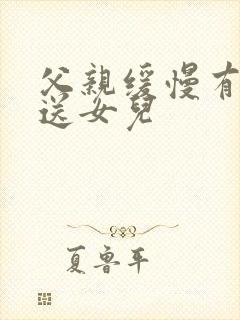 父親緩慢有
送女兒
夏魯平